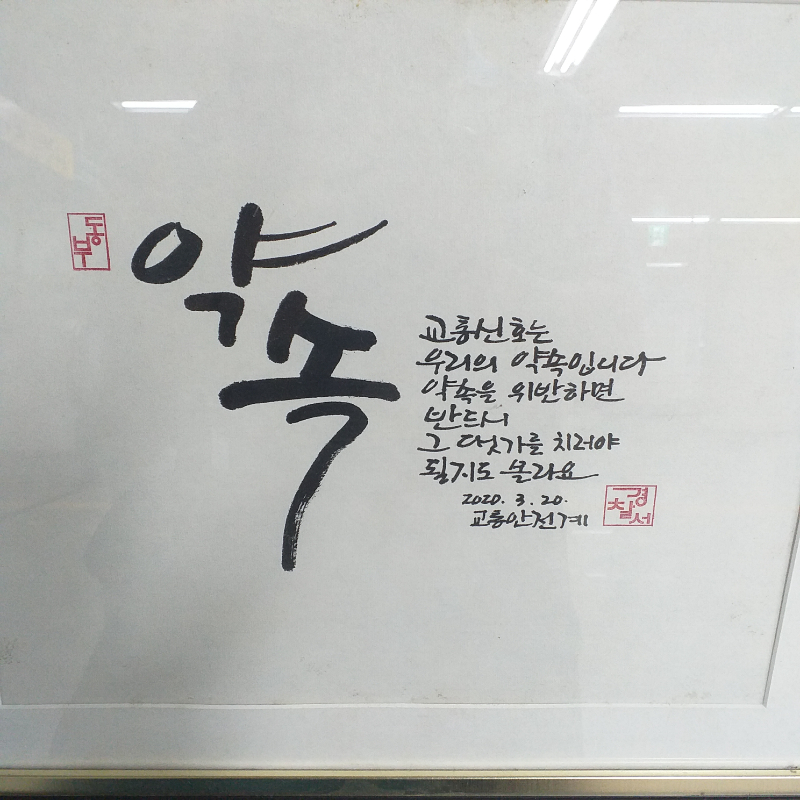 동부
약속
교통신호는
우리의 약속입니다
약속을 위반하면
반드시
그 댓가를 치러야
될지도 몰라요
2020. 3. 20.
교통안전계
경찰서